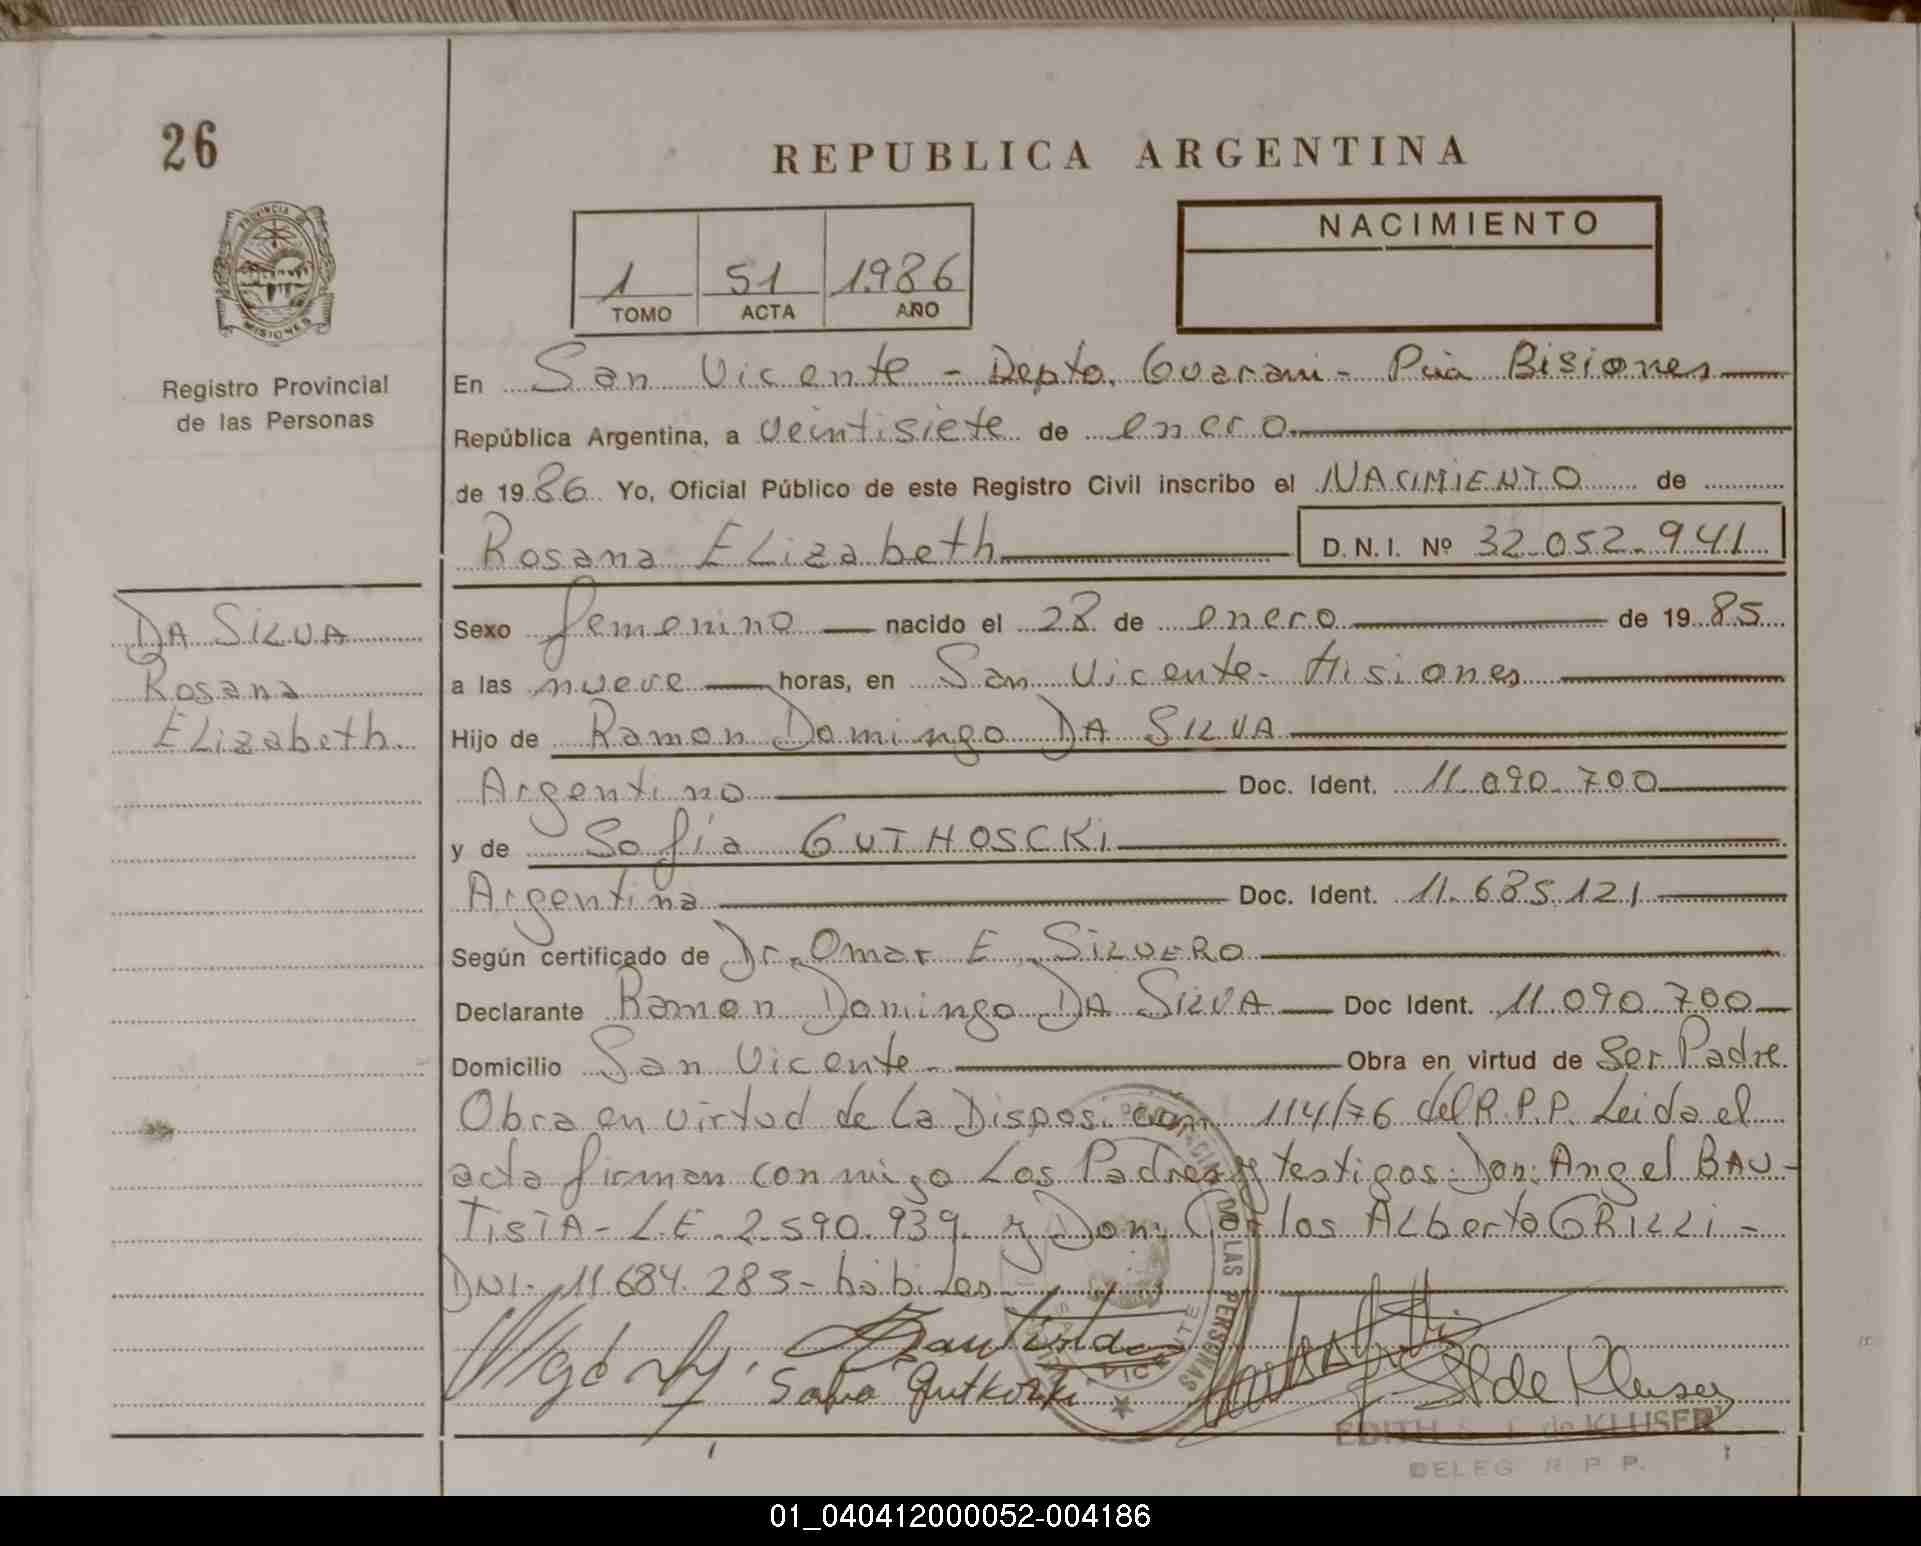 26
REPUBLICA ARGENTINA
NACIMIENTO
1 51 1.986
TOMO ACTA AÑO
PROVINCIA DE
MISIONES
Registro Provincial
de las Personas
En San Vicente - Depto. Guarani - Pcia Misiones
República Argentina, a veintisiete de enero
de 1986 Yo, Oficial Público de este Registro Civil inscribo el NACIMIENTO de
Rosana ELizabeth D.N.I. Nº 32.052.941
DA SILVA
Rosana
ELizabeth
Sexo femenino nacido el 28 de enero de 1985
a las nueve horas, en San Vicente - Misiones
Hijo de Ramon Domingo DA SILVA
Argentino Doc. Ident. 11.090.700
y de Sofia GUTHOSCKI
Argentina Doc. Ident. 11.685.121
Según certificado de Dr. Omar E. SILVERO
Declarante Ramon Domingo DA SILVA Doc Ident. 11.090.700
Domicilio San Vicente Obra en virtud de Ser Padre
Obra en virtud de La Disposicion 114/76 del R.P.P. Leida el
acta firman conmigo Los Padres y testigos: Don: Angel BAU-
TISTA - L.E. 2.590.939 y Don: Carlos ALberto GRILLI -
DNI. 11.684.283 - habiles
Bautista
Gutkoski
St de Kluser
EDITH de KLUSER
DELEG R. P. P.
DE LAS PERSONAS
VICENTE
01_040412000052-004186